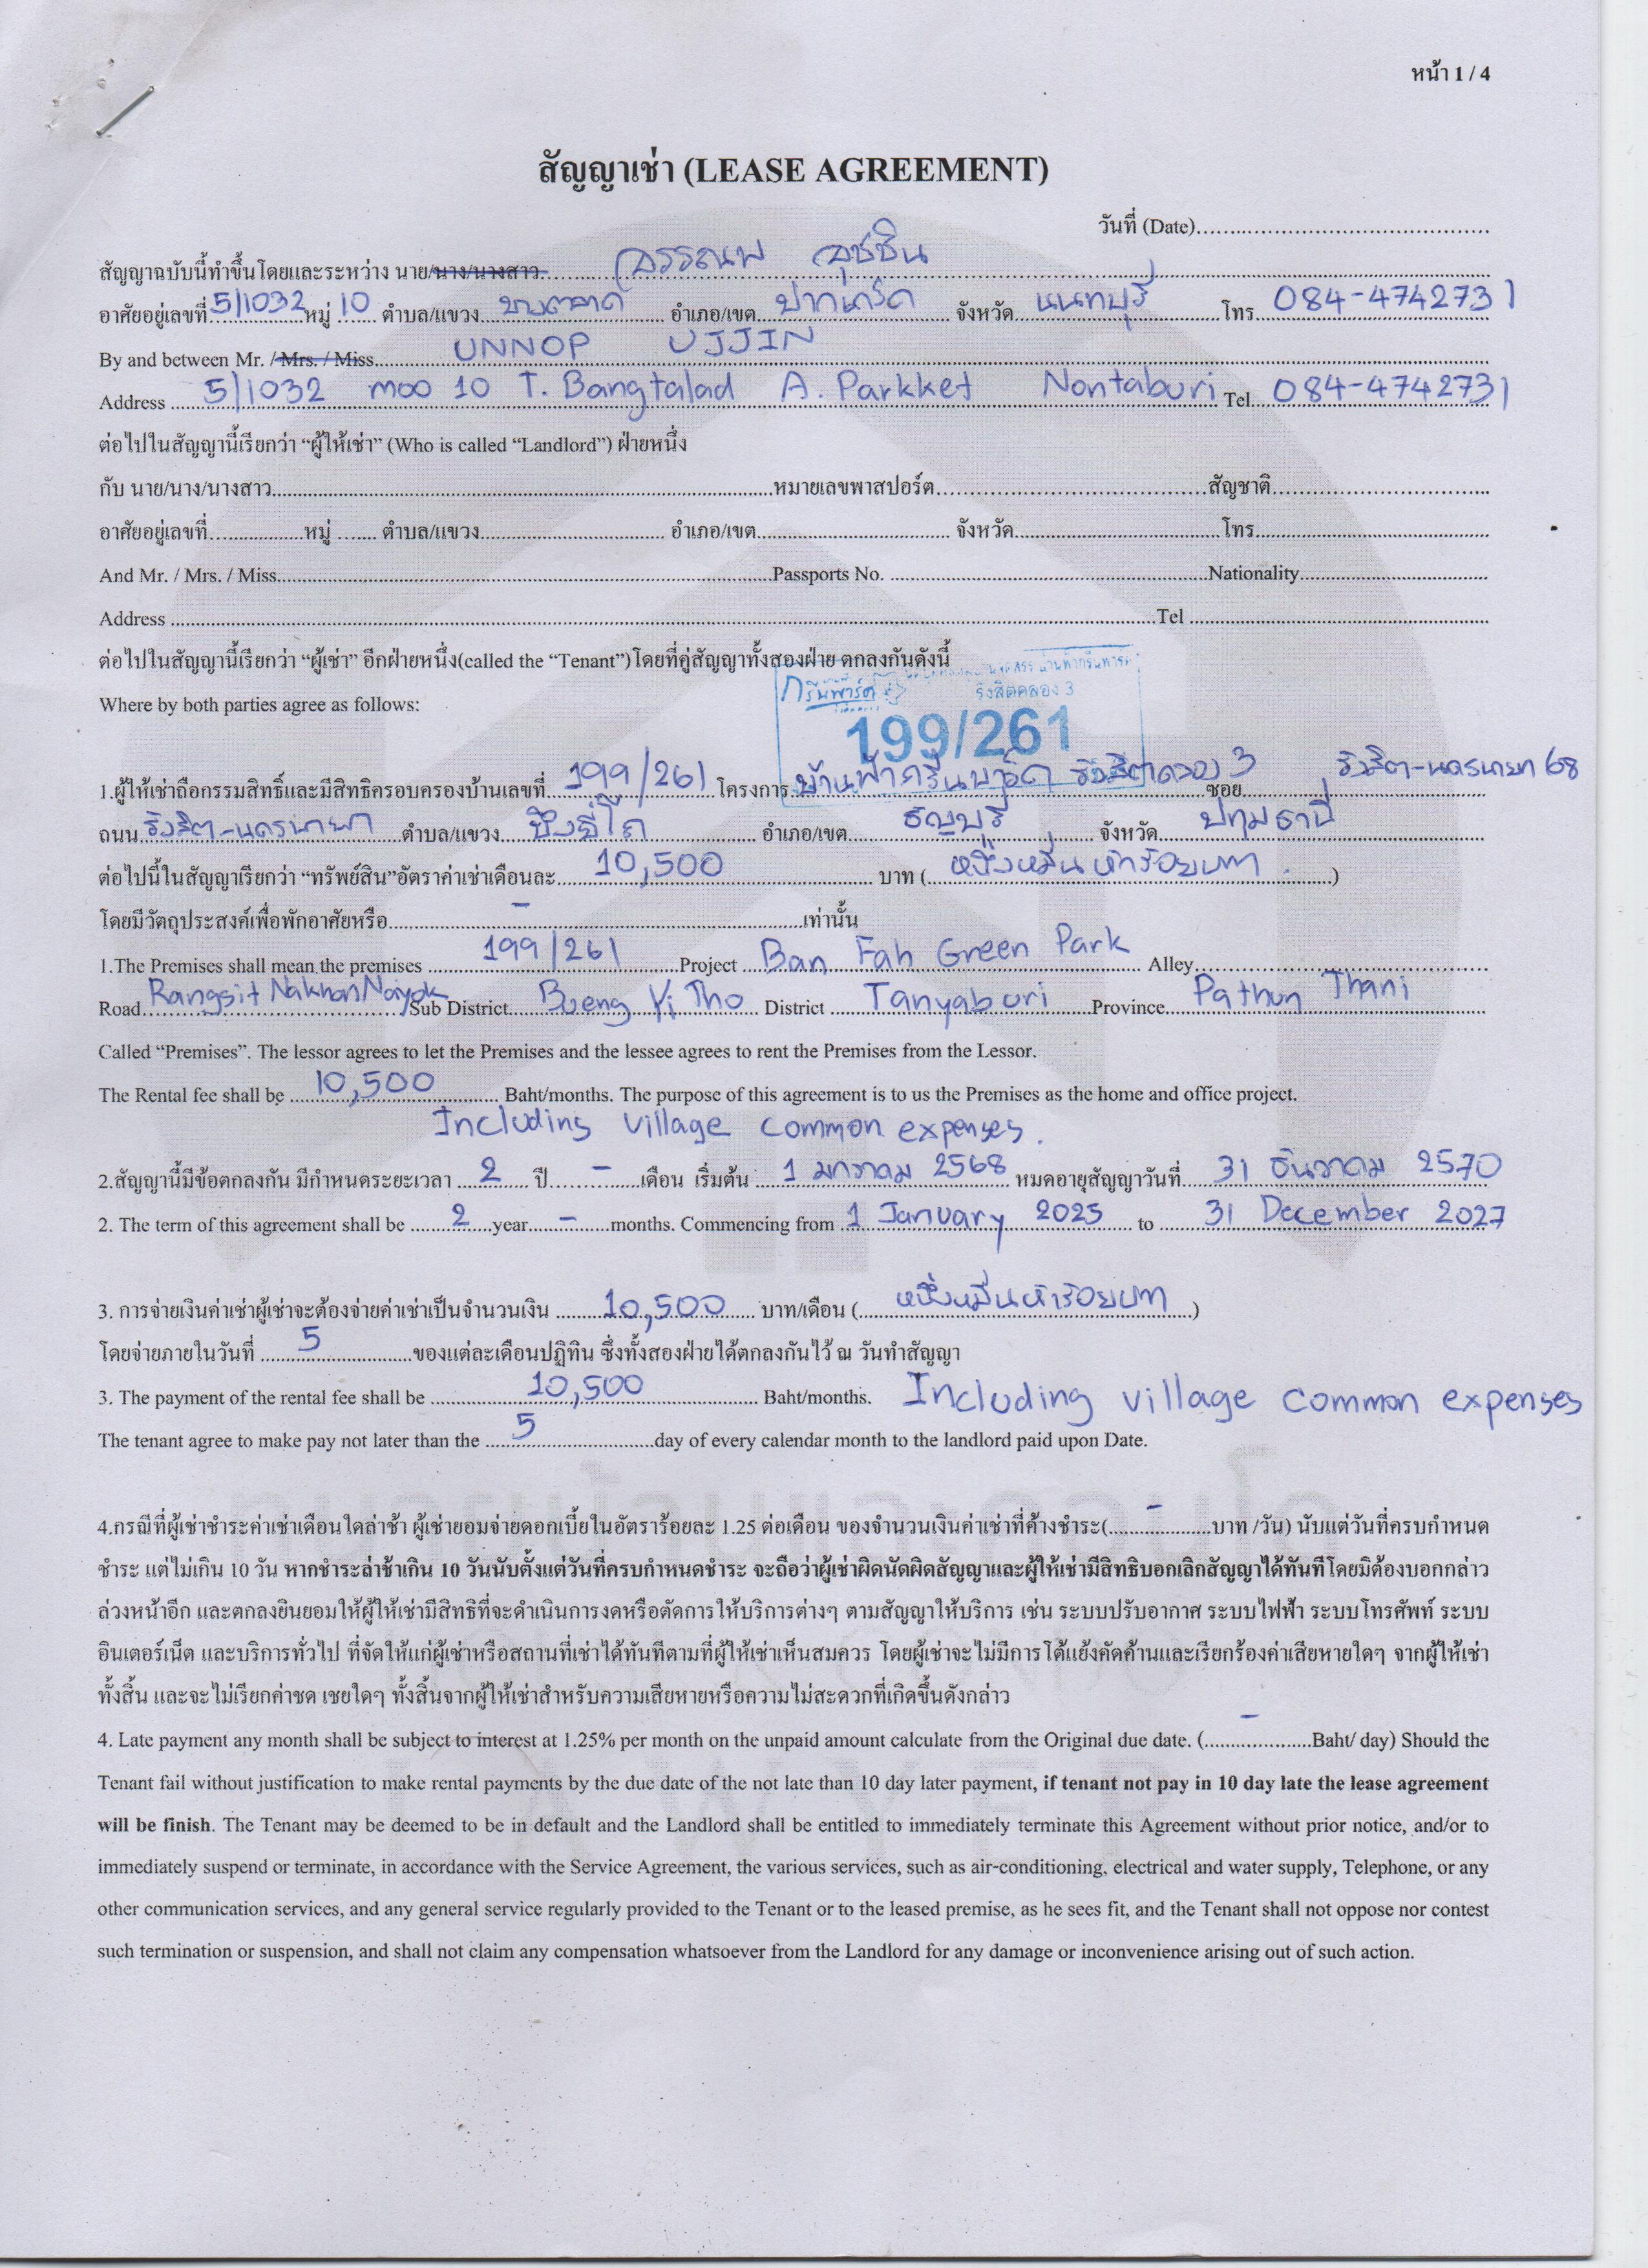 หน้า 1 / 4
สัญญาเช่า (LEASE AGREEMENT)
วันที่ (Date)........................................
สัญญาฉบับนี้ทำขึ้นโดยและระหว่าง นาย/นาง/นางสาว อรรณพ อุชชิน
อาศัยอยู่เลขที่ 5/1032 หมู่ 10 ตำบล/แขวง บางตลาด อำเภอ/เขต ปากเกร็ด จังหวัด นนทบุรี โทร 084-4742731
By and between Mr. / Mrs. / Miss UNNOP UJJIN
Address 5/1032 moo 10 T. Bangtalad A. Parkket Nontaburi Tel 084-4742731
ต่อไปในสัญญานี้เรียกว่า “ผู้ให้เช่า” (Who is called “Landlord”) ฝ่ายหนึ่ง
กับ นาย/นาง/นางสาว..........หมายเลขพาสปอร์ต..........สัญชาติ..........
อาศัยอยู่เลขที่..........หมู่ ....... ตำบล/แขวง.......... อำเภอ/เขต.......... จังหวัด..........โทร..........
And Mr. / Mrs. / Miss..........Passports No. ..........Nationality..........
Address ..........Tel ..........
ต่อไปในสัญญานี้เรียกว่า “ผู้เช่า” อีกฝ่ายหนึ่ง(called the “Tenant”)โดยที่คู่สัญญาทั้งสองฝ่าย ตกลงกันดังนี้
กรีนพาร์ค รังสิตคลอง 3
Where by both parties agree as follows:
199/261
1.ผู้ให้เช่าถือกรรมสิทธิ์และมีสิทธิครอบครองบ้านเลขที่ 199/261 โครงการ บ้านฟ้ากรีนพาร์ค รังสิตคลอง 3 ซอย รังสิต-นครนายก 68
ถนน รังสิต-นครนายก ตำบล/แขวง บึงยี่โถ อำเภอ/เขต ธัญบุรี จังหวัด ปทุมธานี
ต่อไปนี้ในสัญญาเรียกว่า “ทรัพย์สิน”อัตราค่าเช่าเดือนละ 10,500 บาท (หนึ่งหมื่นห้าร้อยบาท)
โดยมีวัตถุประสงค์เพื่อพักอาศัยหรือ - เท่านั้น
1.The Premises shall mean the premises 199/261 Project Ban Fah Green Park Alley..........
Road Rangsit Nakhon Nayok Sub District Bueng Yi Tho District Tanyaburi Province Pathun Thani
Called “Premises”. The lessor agrees to let the Premises and the lessee agrees to rent the Premises from the Lessor.
The Rental fee shall be 10,500 Baht/months. The purpose of this agreement is to us the Premises as the home and office project.
Including village common expenses.
2.สัญญานี้มีข้อตกลงกัน มีกำหนดระยะเวลา 2 ปี - เดือน เริ่มต้น 1 มกราคม 2568 หมดอายุสัญญาวันที่ 31 ธันวาคม 2570
2. The term of this agreement shall be 2 year - months. Commencing from 1 January 2025 to 31 December 2027
3. การจ่ายเงินค่าเช่าผู้เช่าจะต้องจ่ายค่าเช่าเป็นจำนวนเงิน 10,500 บาท/เดือน (หนึ่งหมื่นห้าร้อยบาท)
โดยจ่ายภายในวันที่ 5 ของแต่ละเดือนปฏิทิน ซึ่งทั้งสองฝ่ายได้ตกลงกันไว้ ณ วันทำสัญญา
3. The payment of the rental fee shall be 10,500 Baht/months. Including village common expenses
The tenant agree to make pay not later than the 5 day of every calendar month to the landlord paid upon Date.
4.กรณีที่ผู้เช่าชำระค่าเช่าเดือนใดล่าช้า ผู้เช่ายอมจ่ายดอกเบี้ยในอัตราร้อยละ 1.25 ต่อเดือน ของจำนวนเงินค่าเช่าที่ค้างชำระ( - บาท /วัน) นับแต่วันที่ครบกำหนด
ชำระ แต่ไม่เกิน 10 วัน หากชำระล่าช้าเกิน 10 วันนับตั้งแต่วันที่ครบกำหนดชำระ จะถือว่าผู้เช่าผิดนัดผิดสัญญาและผู้ให้เช่ามีสิทธิบอกเลิกสัญญาได้ทันทีโดยมิต้องบอกกล่าว
ล่วงหน้าอีก และตกลงยินยอมให้ผู้ให้เช่ามีสิทธิที่จะดำเนินการงดหรือตัดการให้บริการต่างๆ ตามสัญญาให้บริการ เช่น ระบบปรับอากาศ ระบบไฟฟ้า ระบบโทรศัพท์ ระบบ
อินเตอร์เน็ต และบริการทั่วไป ที่จัดให้แก่ผู้เช่าหรือสถานที่เช่าได้ทันทีตามที่ผู้ให้เช่าเห็นสมควร โดยผู้เช่าจะไม่มีการโต้แย้งคัดค้านและเรียกร้องค่าเสียหายใดๆ จากผู้ให้เช่า
ทั้งสิ้น และจะไม่เรียกค่าชด เชยใดๆ ทั้งสิ้นจากผู้ให้เช่าสำหรับความเสียหายหรือความไม่สะดวกที่เกิดขึ้นดังกล่าว
4. Late payment any month shall be subject to interest at 1.25% per month on the unpaid amount calculate from the Original due date. ( - Baht/ day) Should the
Tenant fail without justification to make rental payments by the due date of the not late than 10 day later payment, if tenant not pay in 10 day late the lease agreement
will be finish. The Tenant may be deemed to be in default and the Landlord shall be entitled to immediately terminate this Agreement without prior notice, and/or to
immediately suspend or terminate, in accordance with the Service Agreement, the various services, such as air-conditioning, electrical and water supply, Telephone, or any
other communication services, and any general service regularly provided to the Tenant or to the leased premise, as he sees fit, and the Tenant shall not oppose nor contest
such termination or suspension, and shall not claim any compensation whatsoever from the Landlord for any damage or inconvenience arising out of such action.